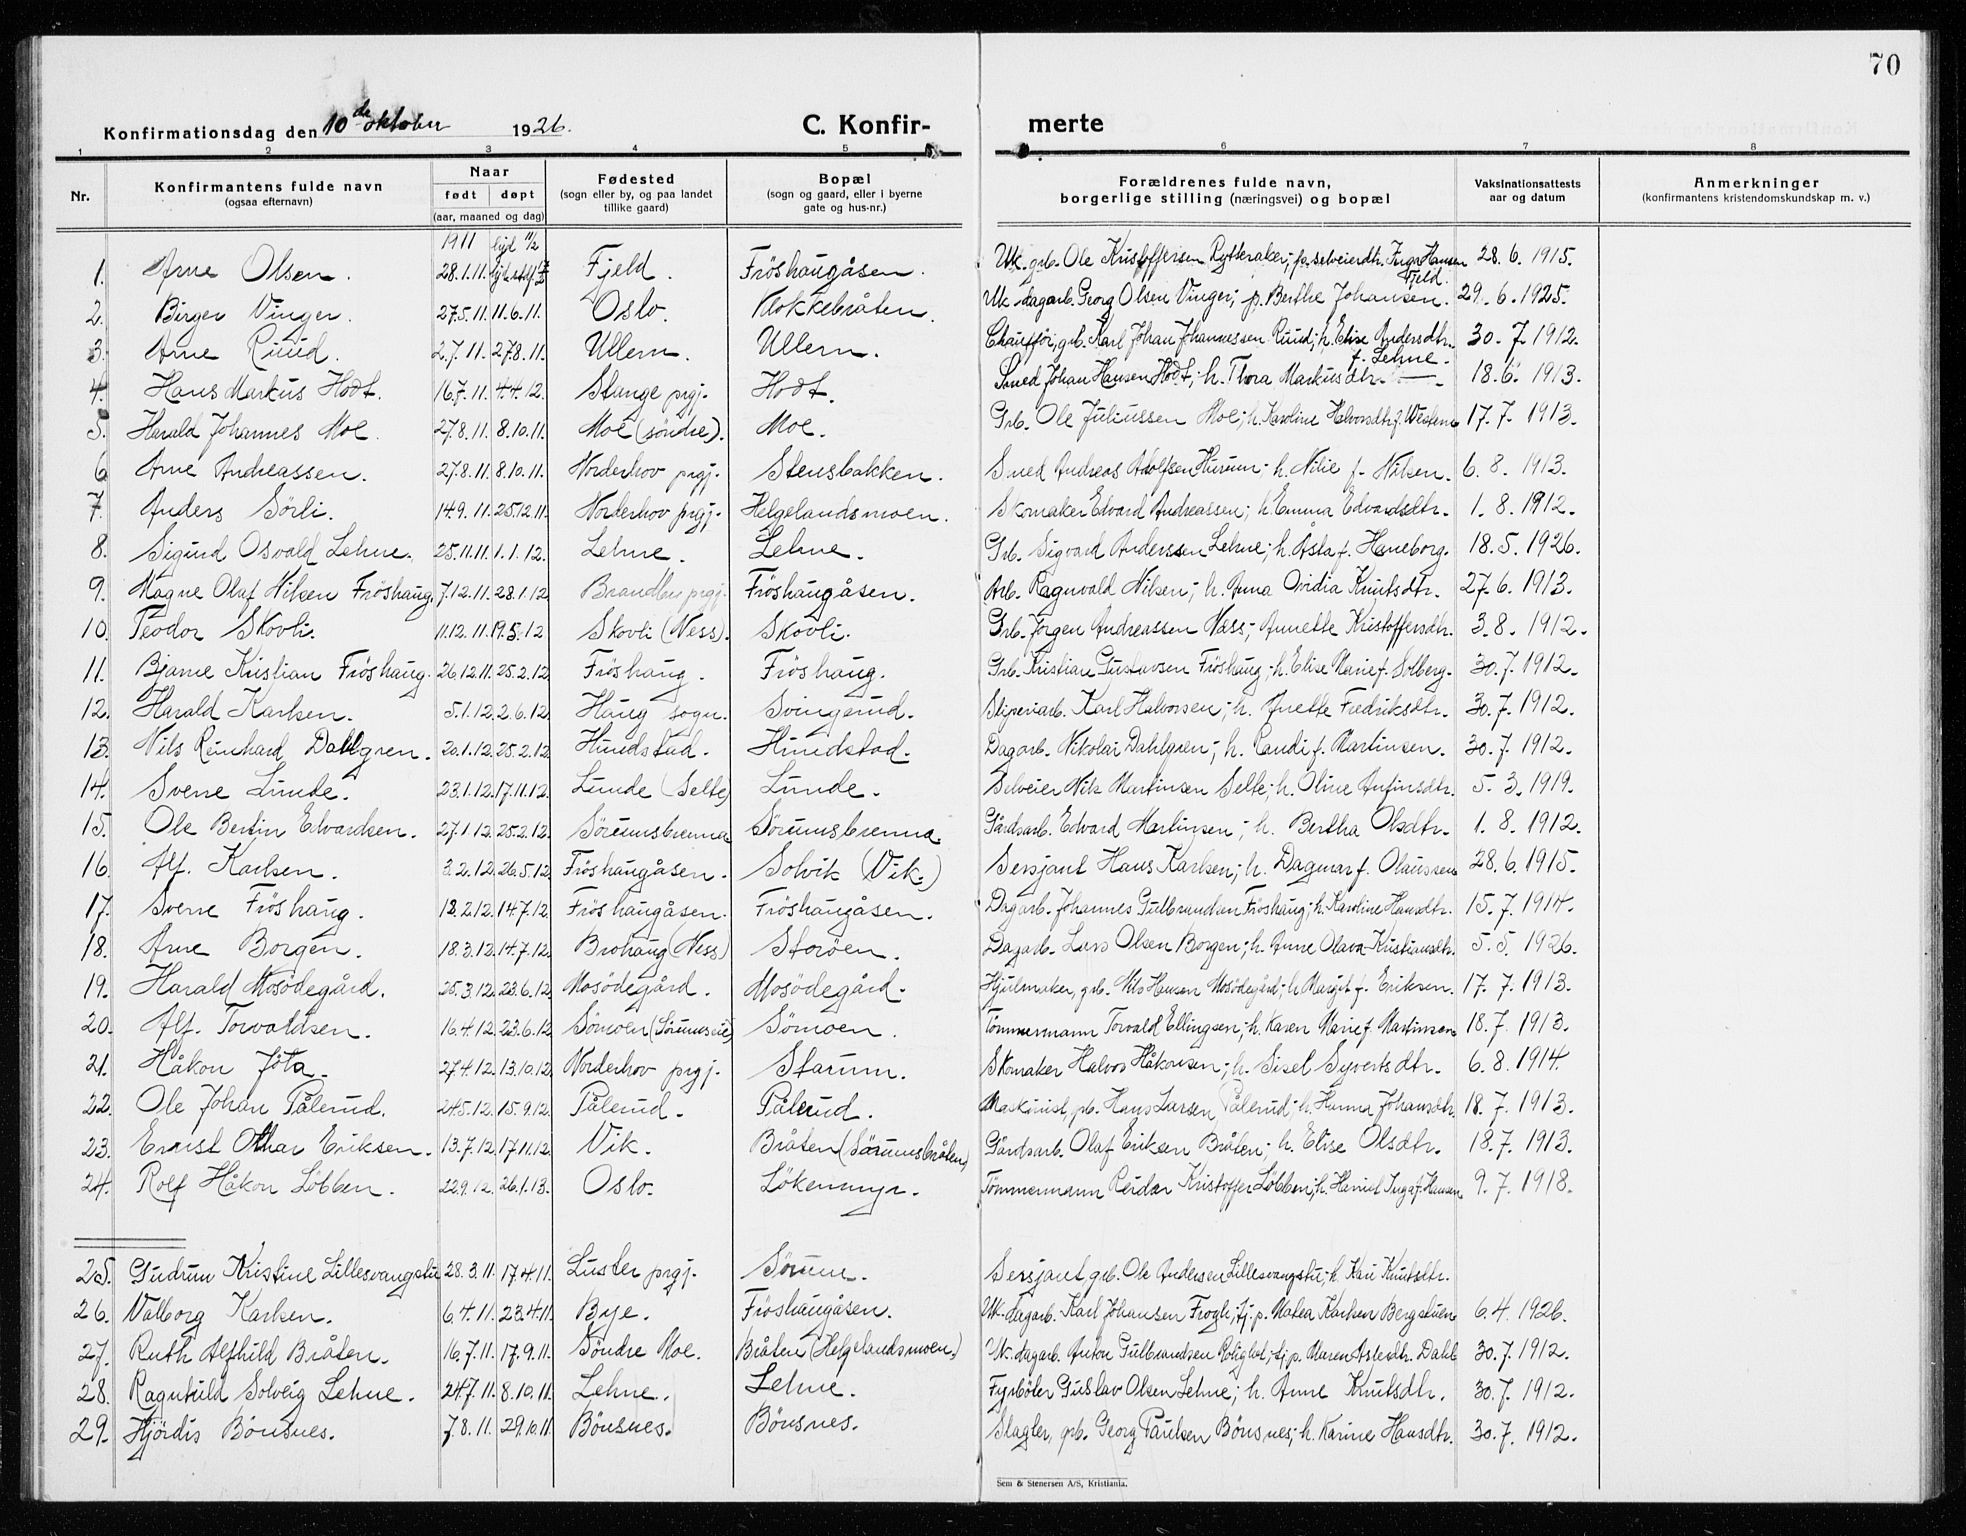 70
Konfirmationsdag den 10de oktober 1926.
C. Konfir- merte
1 2 3 4 5 6 7 8
Nr. Konfirmantens fulde navn (ogsaa efternavn) Naar født døpt (aar, maaned og dag) Fødested (sogn eller by, og paa landet tillike gaard) Bopæl (sogn og gaard, eller i byerne gate og hus-nr.) Forældrenes fulde navn, borgerlige stilling (næringsvei) og bopæl Vaksinationsattests aar og datum Anmerkninger (konfirmantens kristendomskundskap m. v.)
1911
1. Arne Olsen. 28.1.11. Fjeld. Fröshaugåsen. Uk. grb. Ole Kristoffersen Rytteraker; p. selveierdtr. Inga Hansen Fjeld. 28. 6. 1915.
2. Birger Vinger. 27.5.11. 11.6.11. Oslo. Klokkebråten. Uk. dagarb. Georg Olsen Vinger; p. Berthe Johansen. 29. 6. 1925.
3. Arne Ruud. 2.7.11. 27.8.11. Ullern. Ullern. Chaufför, grb. Karl Johan Johannessen Ruud; h. Elise Andersdtr. f. Lehne. 30. 7. 1912.
4. Hans Markus Hodt. 16.7.11. 4.4.12. Stange prgj. Hodt. Smed Johan Hansen Hodt; h. Thora Markusdtr. 18. 6. 1913.
5. Harald Johannes Moe. 27.8.11. 8.10.11. Moe (söndre). Moe. Grb. Ole Juliussen Moe; h. Karoline Halvorsdtr. f. Western 17. 7. 1913.
6. Arne Andreassen. 27.8.11. 8.10.11. Norderhov prgj. Stensbakken. Smed Andreas Adolfsen Hurum; h. Nilie f. Nilsen. 6. 8. 1913.
7. Anders Sörli. 14.9.11. 25.12.11. Norderhov prgj. Helgelandsmoen. Skomaker Edvard Andreassen; h. Emma Edvardsdtr. 1. 8. 1912.
8. Sigurd Osvald Lehne. 25.11.11. 1.1.12. Lehne. Lehne. Grb. Sigvard Anderssen Lehne; h. Åsta f. Haneborg. 18. 5. 1926.
9. Magne Olaf Nilsen Fröshaug. 7.12.11. 28.1.12. Brandbu prgj. Fröshaugåsen. Arb. Ragnvald Nilsen; h. Anna Ovidia Knutsdtr. 27. 6. 1913.
10. Teodor Skovli. 11.12.11. 19.5.12. Skovli (Ness). Skovli. Grb. Jörgen Andreassen Næss; Annette Kristoffersdtr. 3. 8. 1912.
11. Bjarne Kristian Fröshaug. 26.12.11. 25.2.12. Fröshaug. Fröshaug. Grb. Kristian Gustavsen Fröshaug; h. Elise Marie f. Solberg. 30. 7. 1912.
12. Harald Karlsen. 5.1.12. 2.6.12. Haug sogn. Svingerud. Sliperiarb. Karl Halvorsen; h. Anette Fredriksdtr. 30. 7. 1912.
13. Nils Reinhard Dahlgren. 20.1.12. 25.2.12. Hundstad. Hundstad. Dagarb. Nikolai Dahlgren; h. Randi f. Martinsen. 30. 7. 1912.
14. Sverre Lunde. 23.1.12. 17.11.12. Lunde (Selte) Lunde. Selveier Nils Martinsen Selte; h. Oline Anfinsdtr. 5. 3. 1919.
15. Ole Bertin Edvardsen. 27.1.12. 25.2.12. Sörumsbrenna Sörumsbrenna. Gårdsarb. Edvard Martinsen; h. Bertha Olsdtr. 1. 8. 1912.
16. Alf. Karlsen. 3.2.12. 26.5.12. Fröshaugåsen. Solvik (Vik.) Sersjant Hans Karlsen; h. Dagmar f. Olaussen 28. 6. 1915.
17. Sverre Fröshaug. 13.2.12. 14.7.12. Fröshaugåsen. Fröshaugåsen. Dagarb. Johannes Gulbrandsen Fröshaug; h. Karoline Hansdtr. 15. 7. 1914.
18. Arne Borgen. 18.3.12. 14.7.12. Brohaug (Ness) Storöen. Dagarb. Lars Olsen Borgen; h. Anne Olava Kristiansdtr. 5. 5. 1926.
19. Harald Mosödegård. 25.3.12. 23.6.12. Mosödegård. Mosödegård. Hjulmaker, grb. Nils Hansen Mosödegård; h. Margit f. Eriksen. 17. 7. 1913.
20. Alf. Torvaldsen. 16.4.12. 23.6.12. Sömoen (Sörumseie) Sömoen. Tömmermann Torvald Ellingsen; h. Karen Marie f. Martinsen 18. 7. 1913.
21. Håkon Jöta. 27.4.12. 13.10.12. Norderhov prgj. Starum. Skomaker Halvor Håkonsen; h. Sisel Syvertsdtr. 6. 8. 1914.
22. Ole Johan Pålerud. 24.5.12. 15.9.12. Pålerud. Pålerud. Maskinist, grb. Hans Larsen Pålerud; h. Hanna Johansdtr. 18. 7. 1913.
23. Ernst Othar Eriksen. 13.7.12. 17.11.12. Vik. Bråten (Sörumsbråten) Gårdsarb. Olaf Eriksen Bråten; h. Elise Olsdtr. 18. 7. 1913.
24. Rolf Håkon Löbben. 22.9.12. 26.1.13. Oslo. Lökenmyr. Tömmermann Reidar Kristoffer Löbben; h. Harriet Inga f. Hansen 9. 7. 1918.
25. Gudrun Kristine Lillesvangstu 28.3.11. 17.4.11. Luster prgj. Sörum. Sersjant grb. Ole Andersen Lillesvangstu; h. Kari Knutsdtr.
26. Valborg Karlsen. 6.4.11. 23.4.11. Bye. Fröshaugåsen. Uk. dagarb. Karl Johansen Frogh; tj. p. Matea Karlsen Bergstuen 6. 4. 1926.
27. Ruth Alfhild Bråten. 16.7.11. 17.9.11. Söndre Moe. Bråten (Helgelandsmoen.) Uk. dagarb. Anton Gulbrandsen Rolighet; tj. p. Maren Aslesdtr. Dahl 30. 7. 1912.
28. Ragnhild Solveig Lehne. 24.7.11. 8.10.11. Lehne. Lehne. Fyrböter Gustav Olsen Lehne; h. Anne Knutsdtr. 30. 7. 1912.
29. Hjördis Bönsnes. 7.8.11. 29.10.11. Bönsnes. Bönsnes. Slagter, grb. Georg Paulsen Bönsnes; h. Karine Hansdtr. 30. 7. 1912.
Sem & Stenersen A/S, Kristiania.